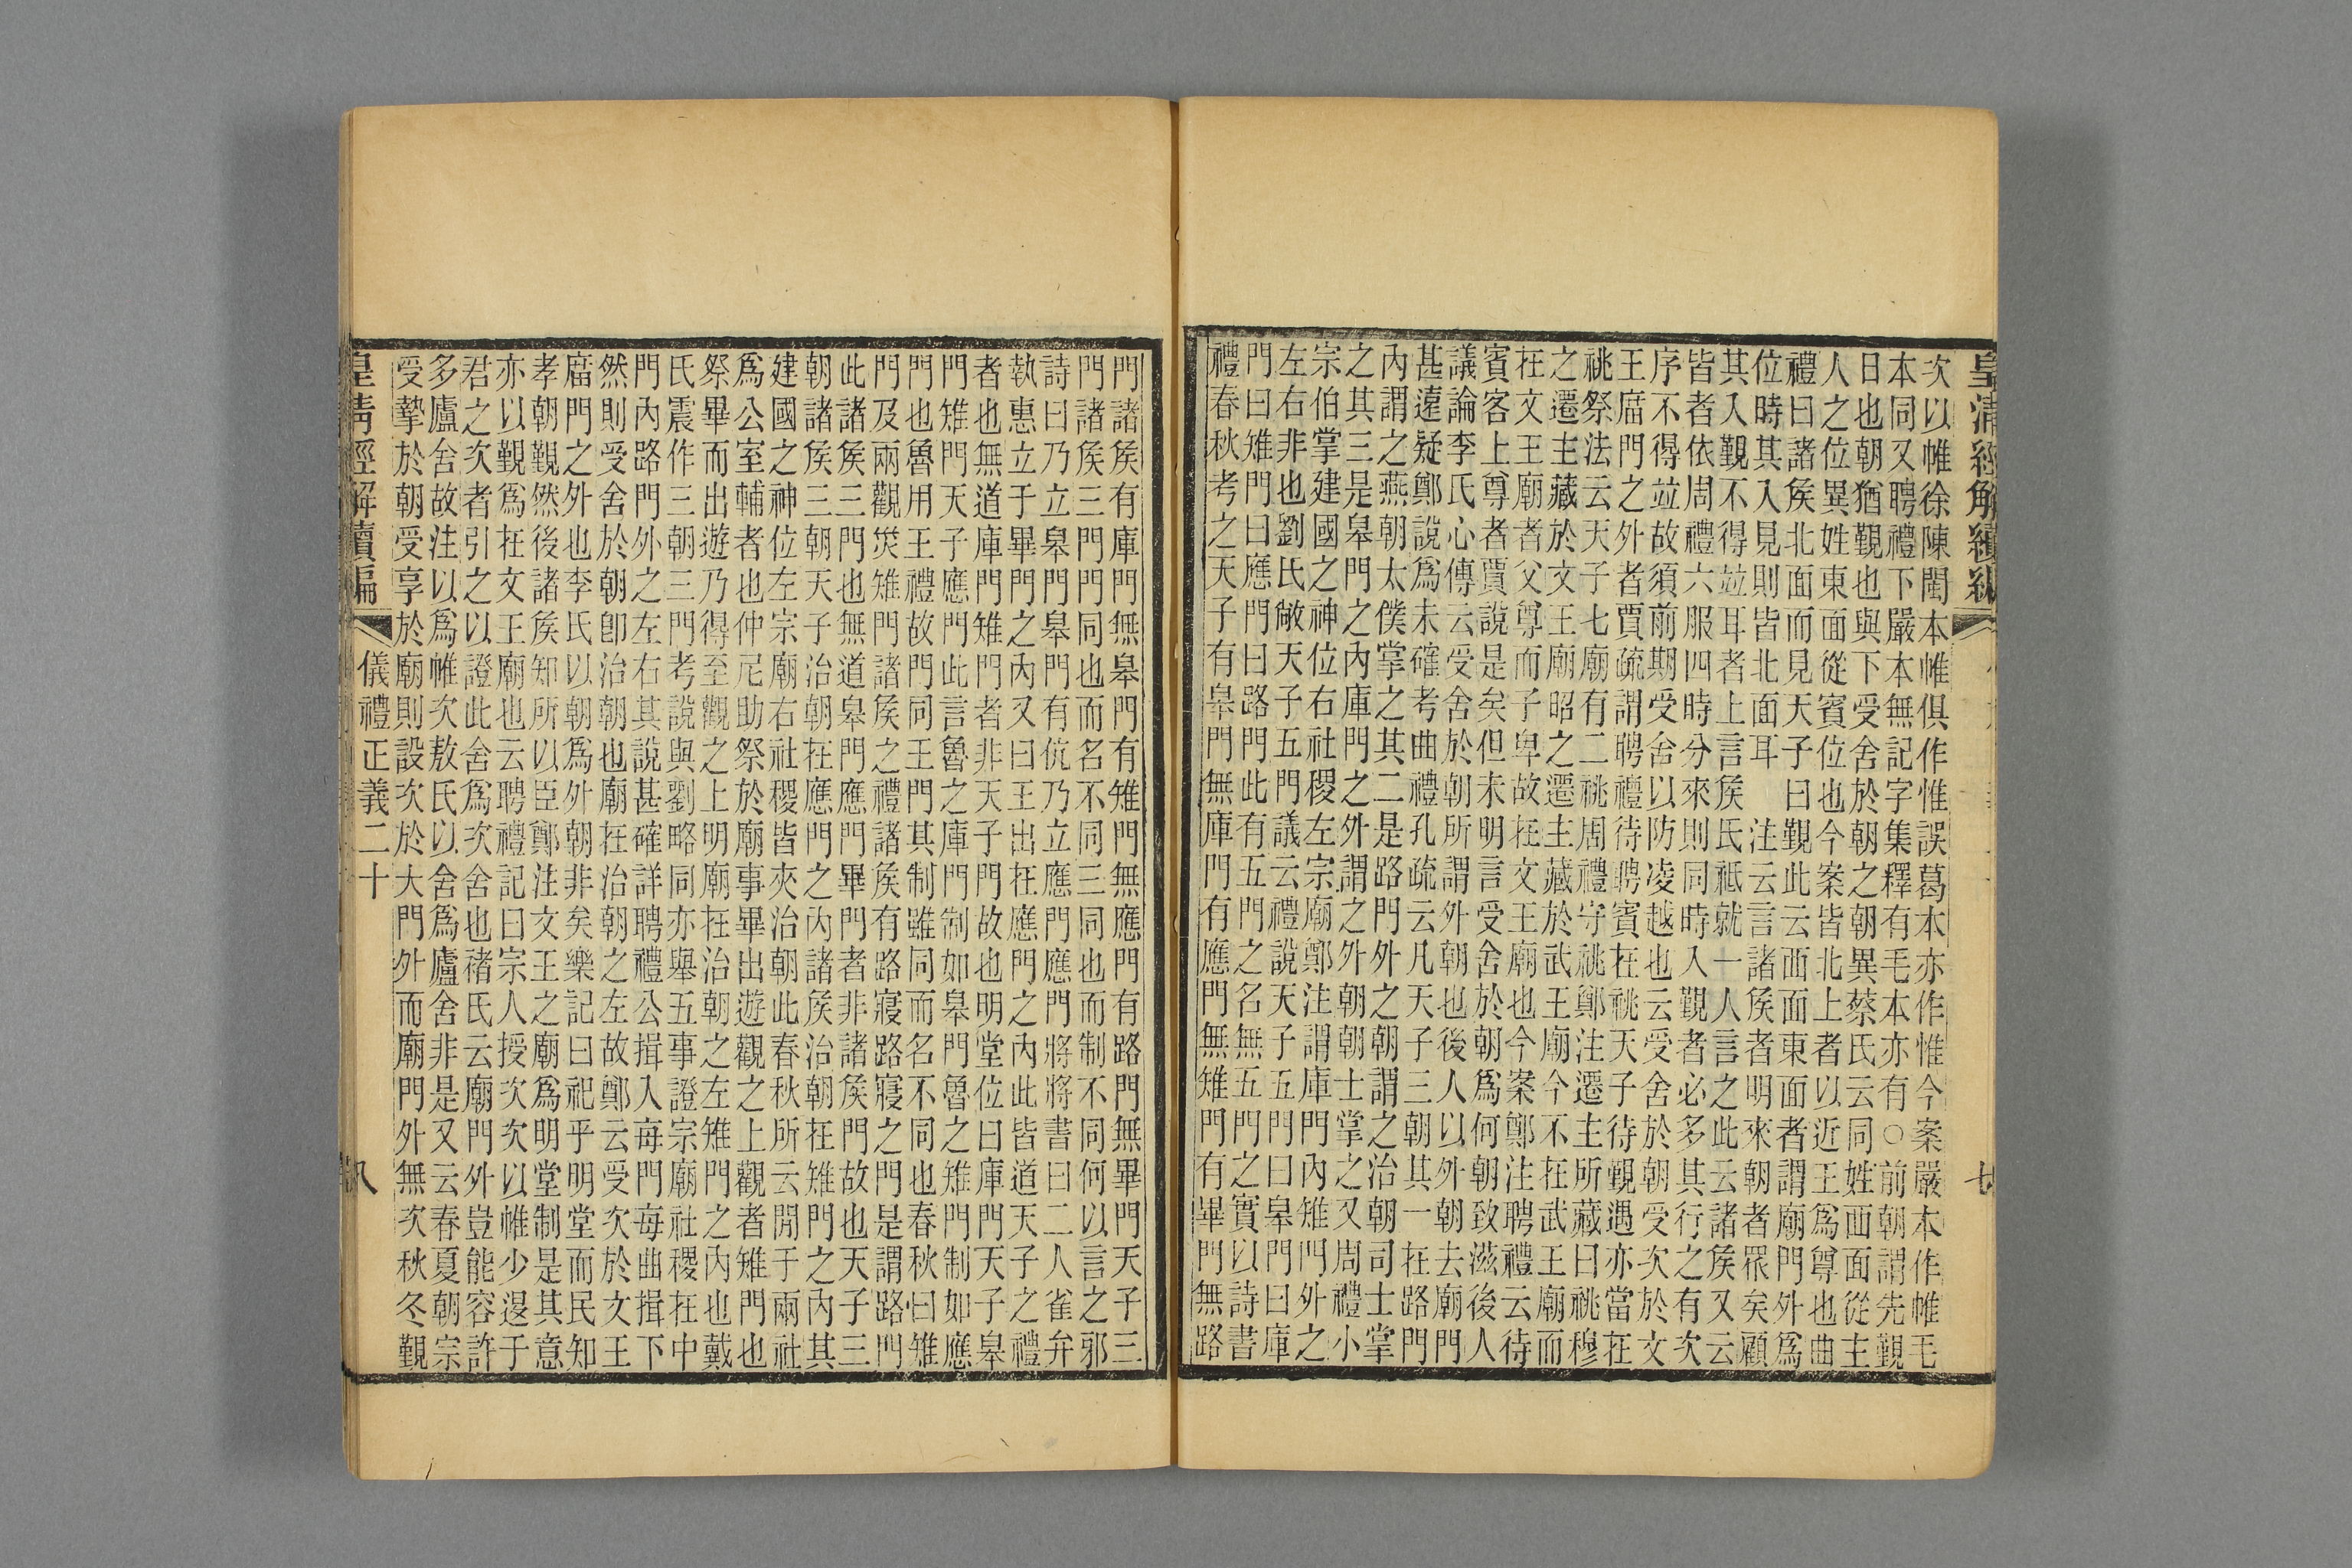 皇清經解續編
七
次以帷徐陳閩本帷俱作惟誤葛本亦作惟今案嚴本作帷毛
本同又聘禮下嚴本無記字集釋有毛本亦有○前朝謂先覲
日也朝猶覲也與下受舍於朝之朝異蔡氏云同姓西面從主
人之位異姓東面從賓位也今案皆北上者以近王爲尊也曲
禮曰諸矦北面而見天子曰覲此云西面東面者謂廟門外爲
位時其入見則皆北面耳　注云言諸矦者明來朝者眾矣顧
其入覲不得竝耳者上言矦氏祇就一人言之此云諸矦又云
皆者依周禮六服四時分來則同時入覲者必多其行之有次
序不得竝故須前期受舍以防凌越也云受舍於朝受次於文
王庿門之外者賈疏謂聘禮待聘賓在祧天子待覲遇亦當在
祧祭法云天子七廟有二祧周禮守祧鄭注遷主所藏曰祧穆
之遷主藏於文王廟昭之遷主藏於武王廟今不在武王廟而
在文王廟者父尊而子卑故在文王廟也今案鄭注聘禮云待
賓客上尊者賈說是矣但未明言受舍於朝爲何朝致滋後人
議論李氏心傳云受舍於朝所謂外朝也後人以外朝去廟門
甚遠疑鄭說爲未確考曲禮孔疏云凡天子三朝其一在路門
內謂之燕朝太僕掌之其二是路門外之朝謂之治朝司士掌
之其三是皋門之內庫門之外謂之外朝朝士掌之又周禮小
宗伯掌建國之神位右社稷左宗廟鄭注謂庫門內雉門外之
左右非也劉氏敞天子五門議云禮說天子五門曰皋門曰庫
門曰雉門曰應門曰路門此有五門之名無五門之實以詩書
禮春秋考之天子有皋門無庫門有應門無雉門有畢門無路
門諸矦有庫門無皋門有雉門無應門有路門無畢門天子三
門諸矦三門門同也而名不同三同也而制不同何以言之邪
詩曰乃立皋門皋門有伉乃立應門應門將將書曰二人雀弁
執惠立于畢門之內又曰王出在應門之內此皆道天子之禮
者也無道庫門雉門者非天子門故也明堂位曰庫門天子皋
門雉門天子應門此言魯之庫門制如皋門魯之雉門制如應
門也魯用王禮故門同王門其制雖同而名不同也春秋曰雉
門及兩觀災雉門諸矦之禮諸矦有路寢路寢之門是謂路門
此諸矦三門也無道皋門應門畢門者非諸矦門故也天子三
朝諸矦三朝天子治朝在應門之內諸矦治朝在雉門之內其
建國之神位左宗廟右社稷皆夾治朝此春秋所云閒于兩社
爲公室輔者也仲尼助祭於廟事畢出遊觀之上觀者雉門也
祭畢而出遊乃得至觀之上明廟在治朝之左雉門之內也戴
氏震作三朝三門考說與劉略同亦舉五事證宗廟社稷在中
門內路門外之左右其說甚確詳聘禮公揖入每門每曲揖下
然則受舍於朝卽治朝也廟在治朝之左故鄭云受次於文王
庿門之外也李氏以朝爲外朝非矣樂記曰祀乎明堂而民知
孝朝覲然後諸矦知所以臣鄭注文王之廟爲明堂制是其意
亦以覲爲在文王廟也云聘禮記曰宗人授次次以帷少退于
君之次者引之以證此舍爲次舍也褚氏云廟門外豈能容許
多廬舍故注以爲帷次敖氏以舍爲廬舍非是又云春夏朝宗
受摯於朝受享於廟則設次於大門外而廟門外無次秋冬覲
皇清經解續編
儀禮正義二十
八